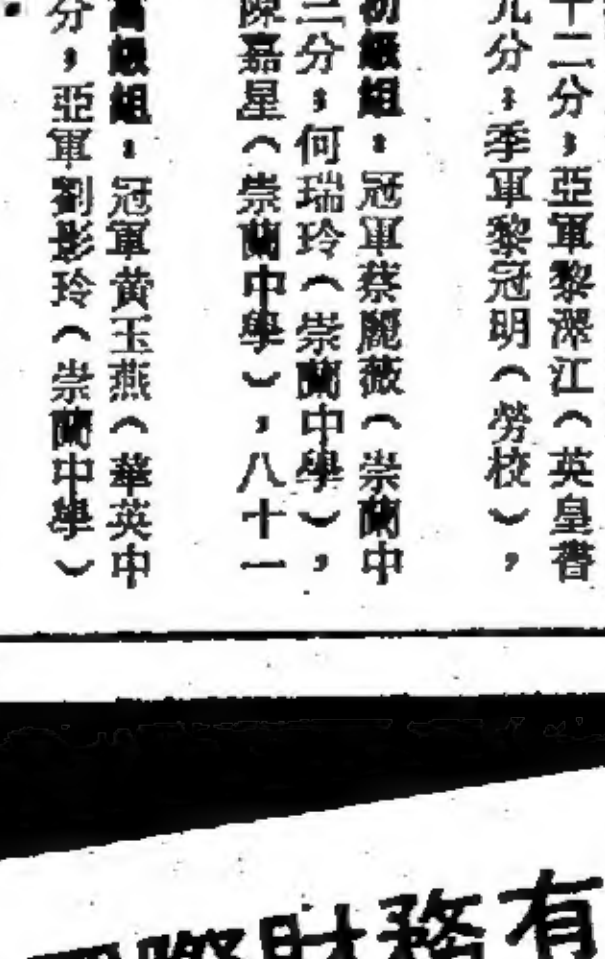 十二分；亞軍黎澤江（英皇書
九分；季軍黎冠明（勞校），
初級組：冠軍蔡麗薇（崇蘭中
三分；何瑞玲（崇蘭中學），
陳嘉星（崇蘭中學），八十一
高級組：冠軍黃玉燕（華英中
分；亞軍劉影玲（崇蘭中學）
國際財務有